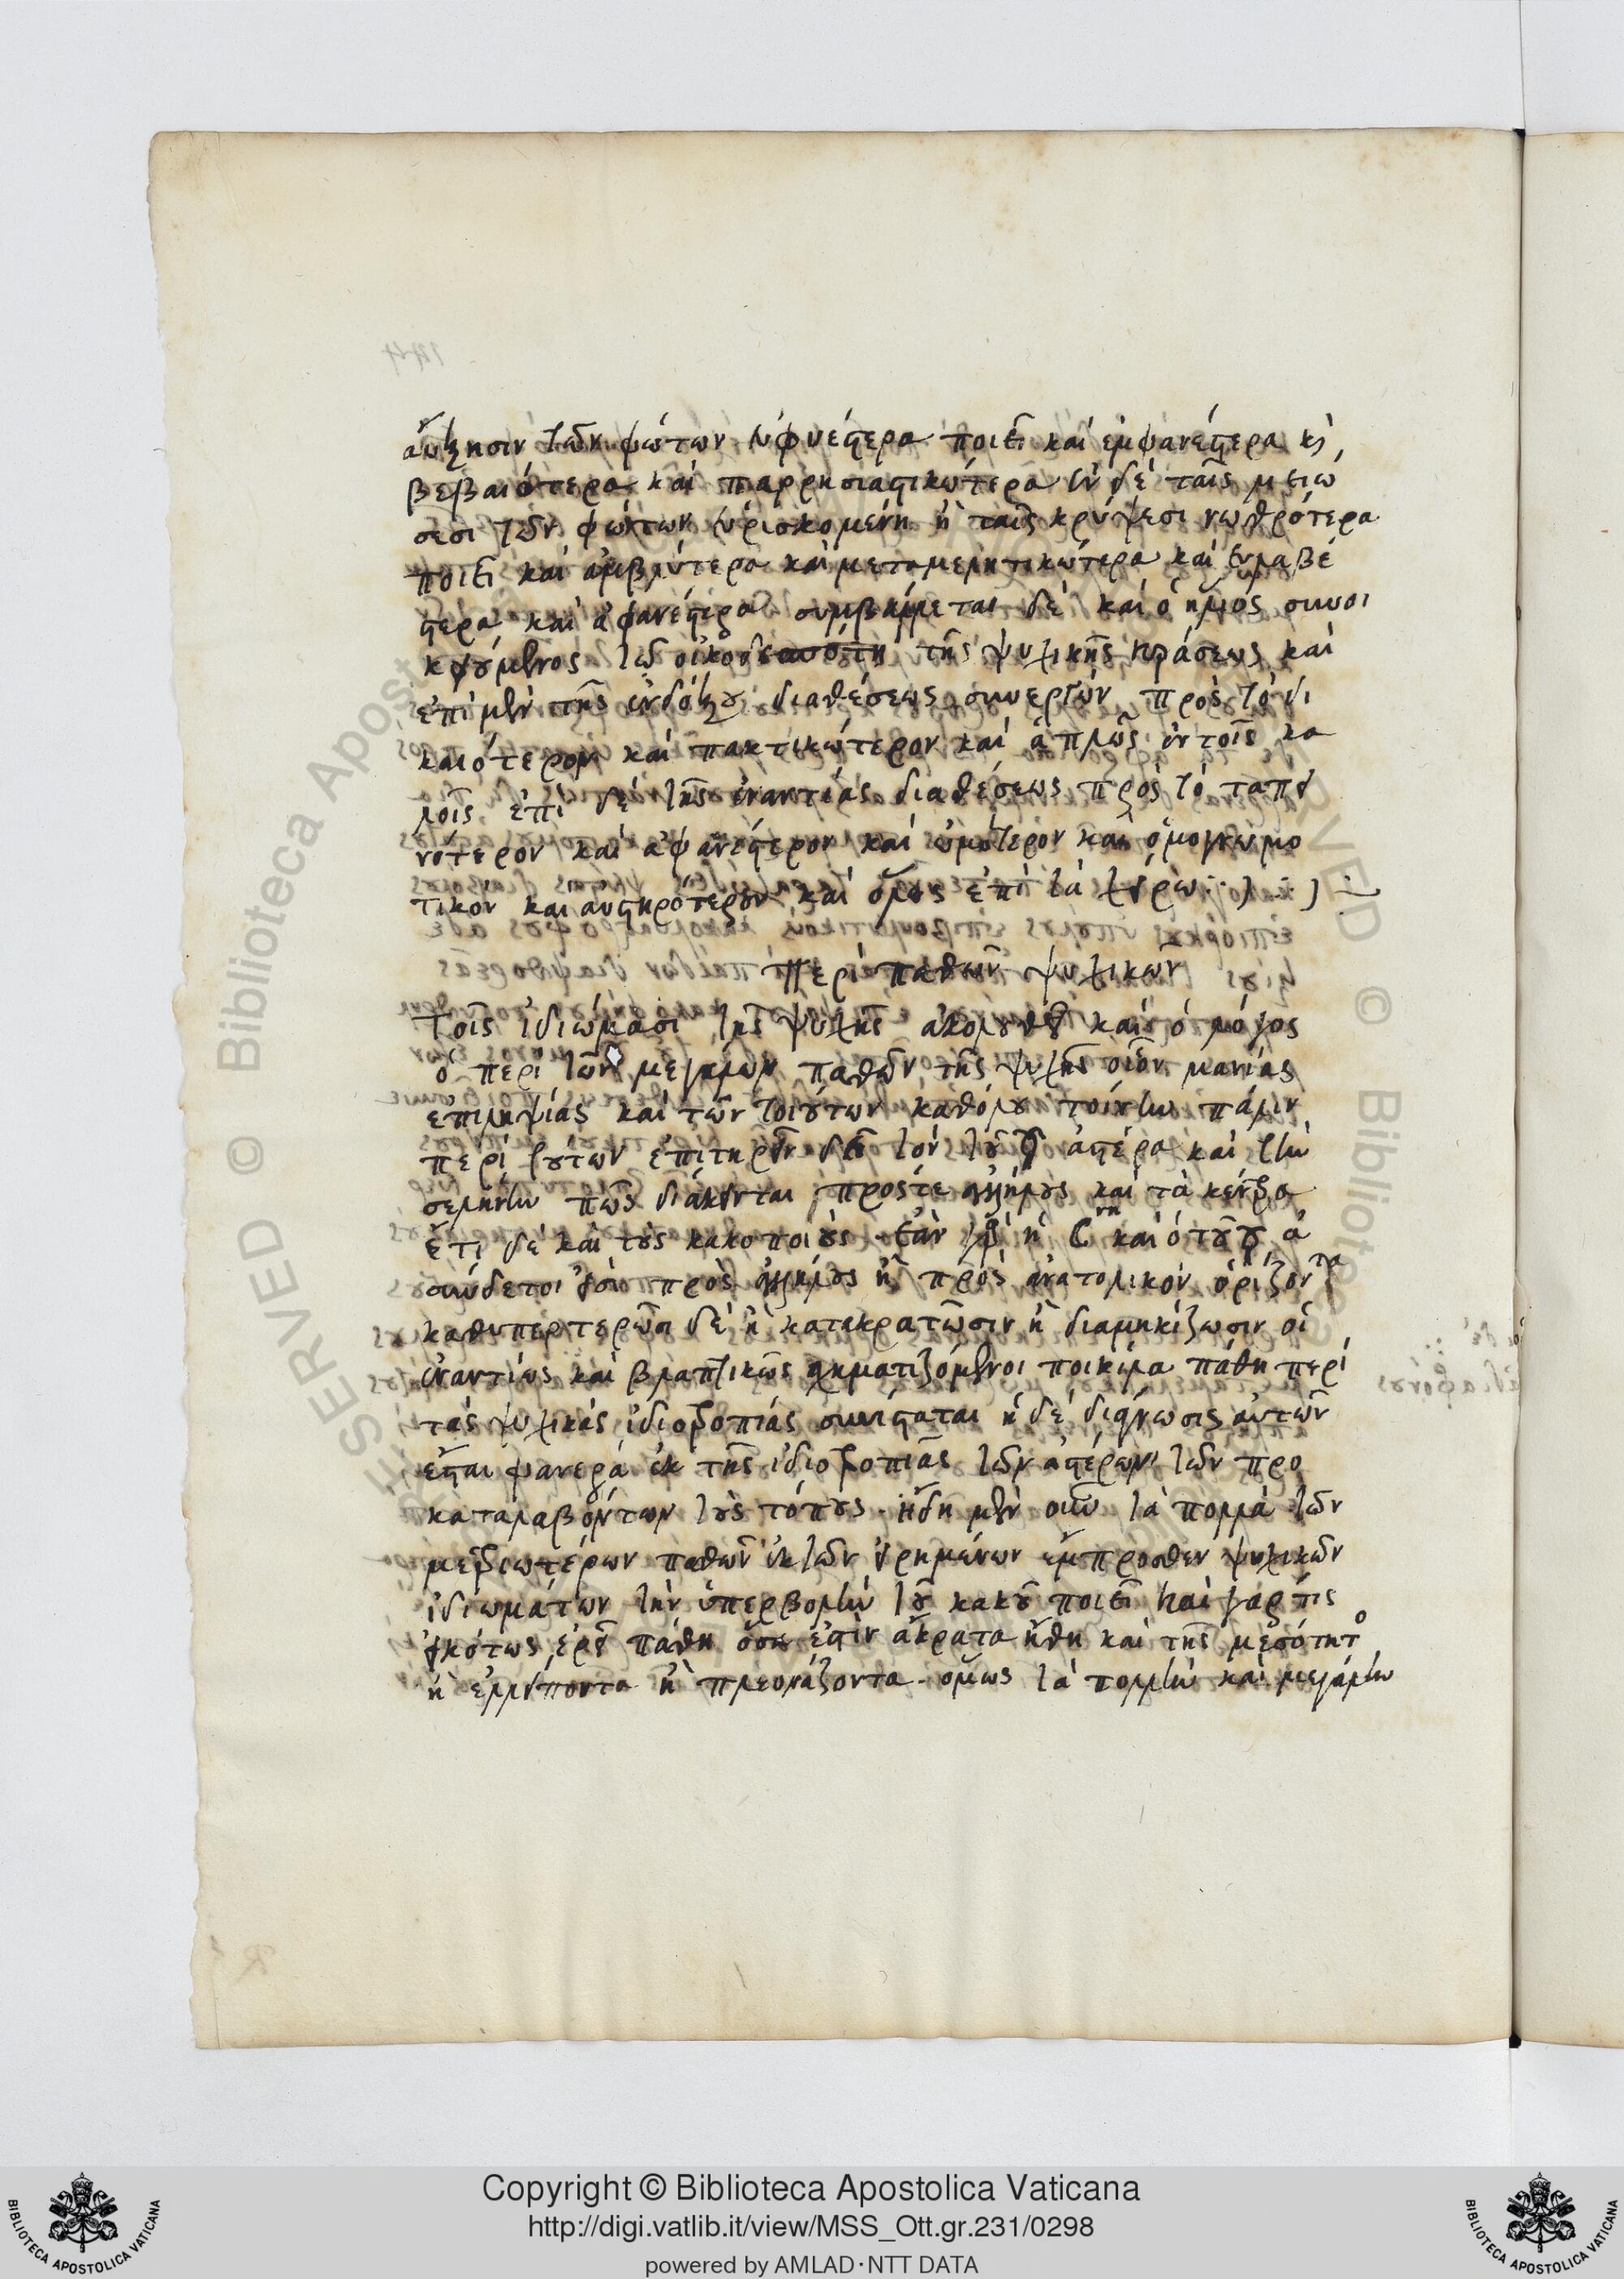 αὔξησιν τῶν φώτων εὐφυέστερα ποιεῖ καὶ ἐμφανέστερα κὶ
βεβαιότερα καὶ παρρησιαστικώτερα ἐν δὲ ταῖς μειώ
σεσι τῶν φώτων εὑρισκομένη ἢ ταῖς κρύψεσι νωθρότερα
ποιεῖ καὶ ἀμβλύτερα καὶ μεταμελητικώτερα καὶ εὐλαβέ
στερα καὶ ἀφανέστερα συμβάλλεται δὲ καὶ ὁ ἥλιος συνοι
κειούμενος τῷ οἰκοδεσπότῃ τῆς ψυχικῆς κράσεως καὶ
ἐπὶ μὲν τῆς ἐνδόξου διαθέσεως συνεργῶν πρὸς τὸ δι
καιότερον καὶ πακτικώτερον καὶ ἁπλῶς ἐν τοῖς κα
λοῖς ἐπὶ δὲ τῆς ἐναντίας διαθέσεως πρὸς τὸ ταπει
νότερον καὶ ἀφανέστερον καὶ ὠμότερον καὶ ὁμογνωμο
τικὸν καὶ αὐστηρότερον καὶ ὅμως ἐπὶ τὰ χείρω
Περὶ παθῶν ψυχικῶν
Τοῖς ἰδιώμασι τῆς ψυχῆς ἀκολουθεῖ καὶ ὁ λόγος
ὁ περὶ τῶν μεγάλων παθῶν τῆς ψυχῆς οἷον μανίας
ἐπιληψίας καὶ τῶν τοιούτων καθόλου τοίνυν πάλιν
περὶ τούτων ἐπιτηρεῖν δεῖ τὸν τοῦ ☿ ἀστέρα καὶ τὴν
σελήνην πῶς διάκεινται πρός τε ἀλλήλους καὶ τὰ κέντρα
ἔτι δὲ καὶ τοὺς κακοποιούς. ἐὰν γὰρ ἡ ☾νη καὶ ὁ τοῦ ☿ ἀ
σύνδετοι ὦσι πρὸς ἀλλήλους ἢ πρὸς ἀνατολικὸν ὁρίζοντα
καθυπερτερῶσι δὲ ἢ κατακρατῶσιν ἢ διαμηκίζωσιν οἱ
ἐναντίως καὶ βλαπτικῶς σχηματιζόμενοι ποικίλα πάθη περὶ
τὰς ψυχικὰς ἰδιοτροπίας συνίσταται ἡ δὲ διάγνωσις αὐτῶν
ἔσται φανερὰ ἐκ τῆς ἰδιοτροπίας τῶν ἀστέρων τῶν προ
καταλαβόντων τοὺς τόπους. ἤδη μὲν οὖν τὰ πολλὰ τῶν
μετριωτέρων παθῶν ἐκ τῶν εἰρημένων ἔμπροσθεν ψυχικῶν
ἰδιωμάτων τὴν ὑπερβολὴν τοῦ κακοῦ ποιεῖ καὶ γάρ τις
εἰκότως ἐρεῖ πάθη ὅσα ἐστὶν ἄκρατα ἤθη καὶ τῆς μεσότητος
ἢ ἐλλείποντα ἢ πλεονάζοντα. ὅμως τὰ πολλὴν καὶ μεγάλην
Copyright © Biblioteca Apostolica Vaticana
http://digi.vatlib.it/view/MSS_Ott.gr.231/0298
powered by AMLAD·NTT DATA